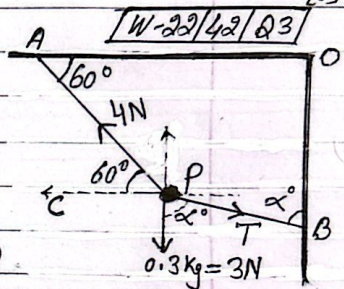 W-22/42/Q3
A
O
60°
4N
60°
P
C
α°
α°
T
B
0.3kg=3N